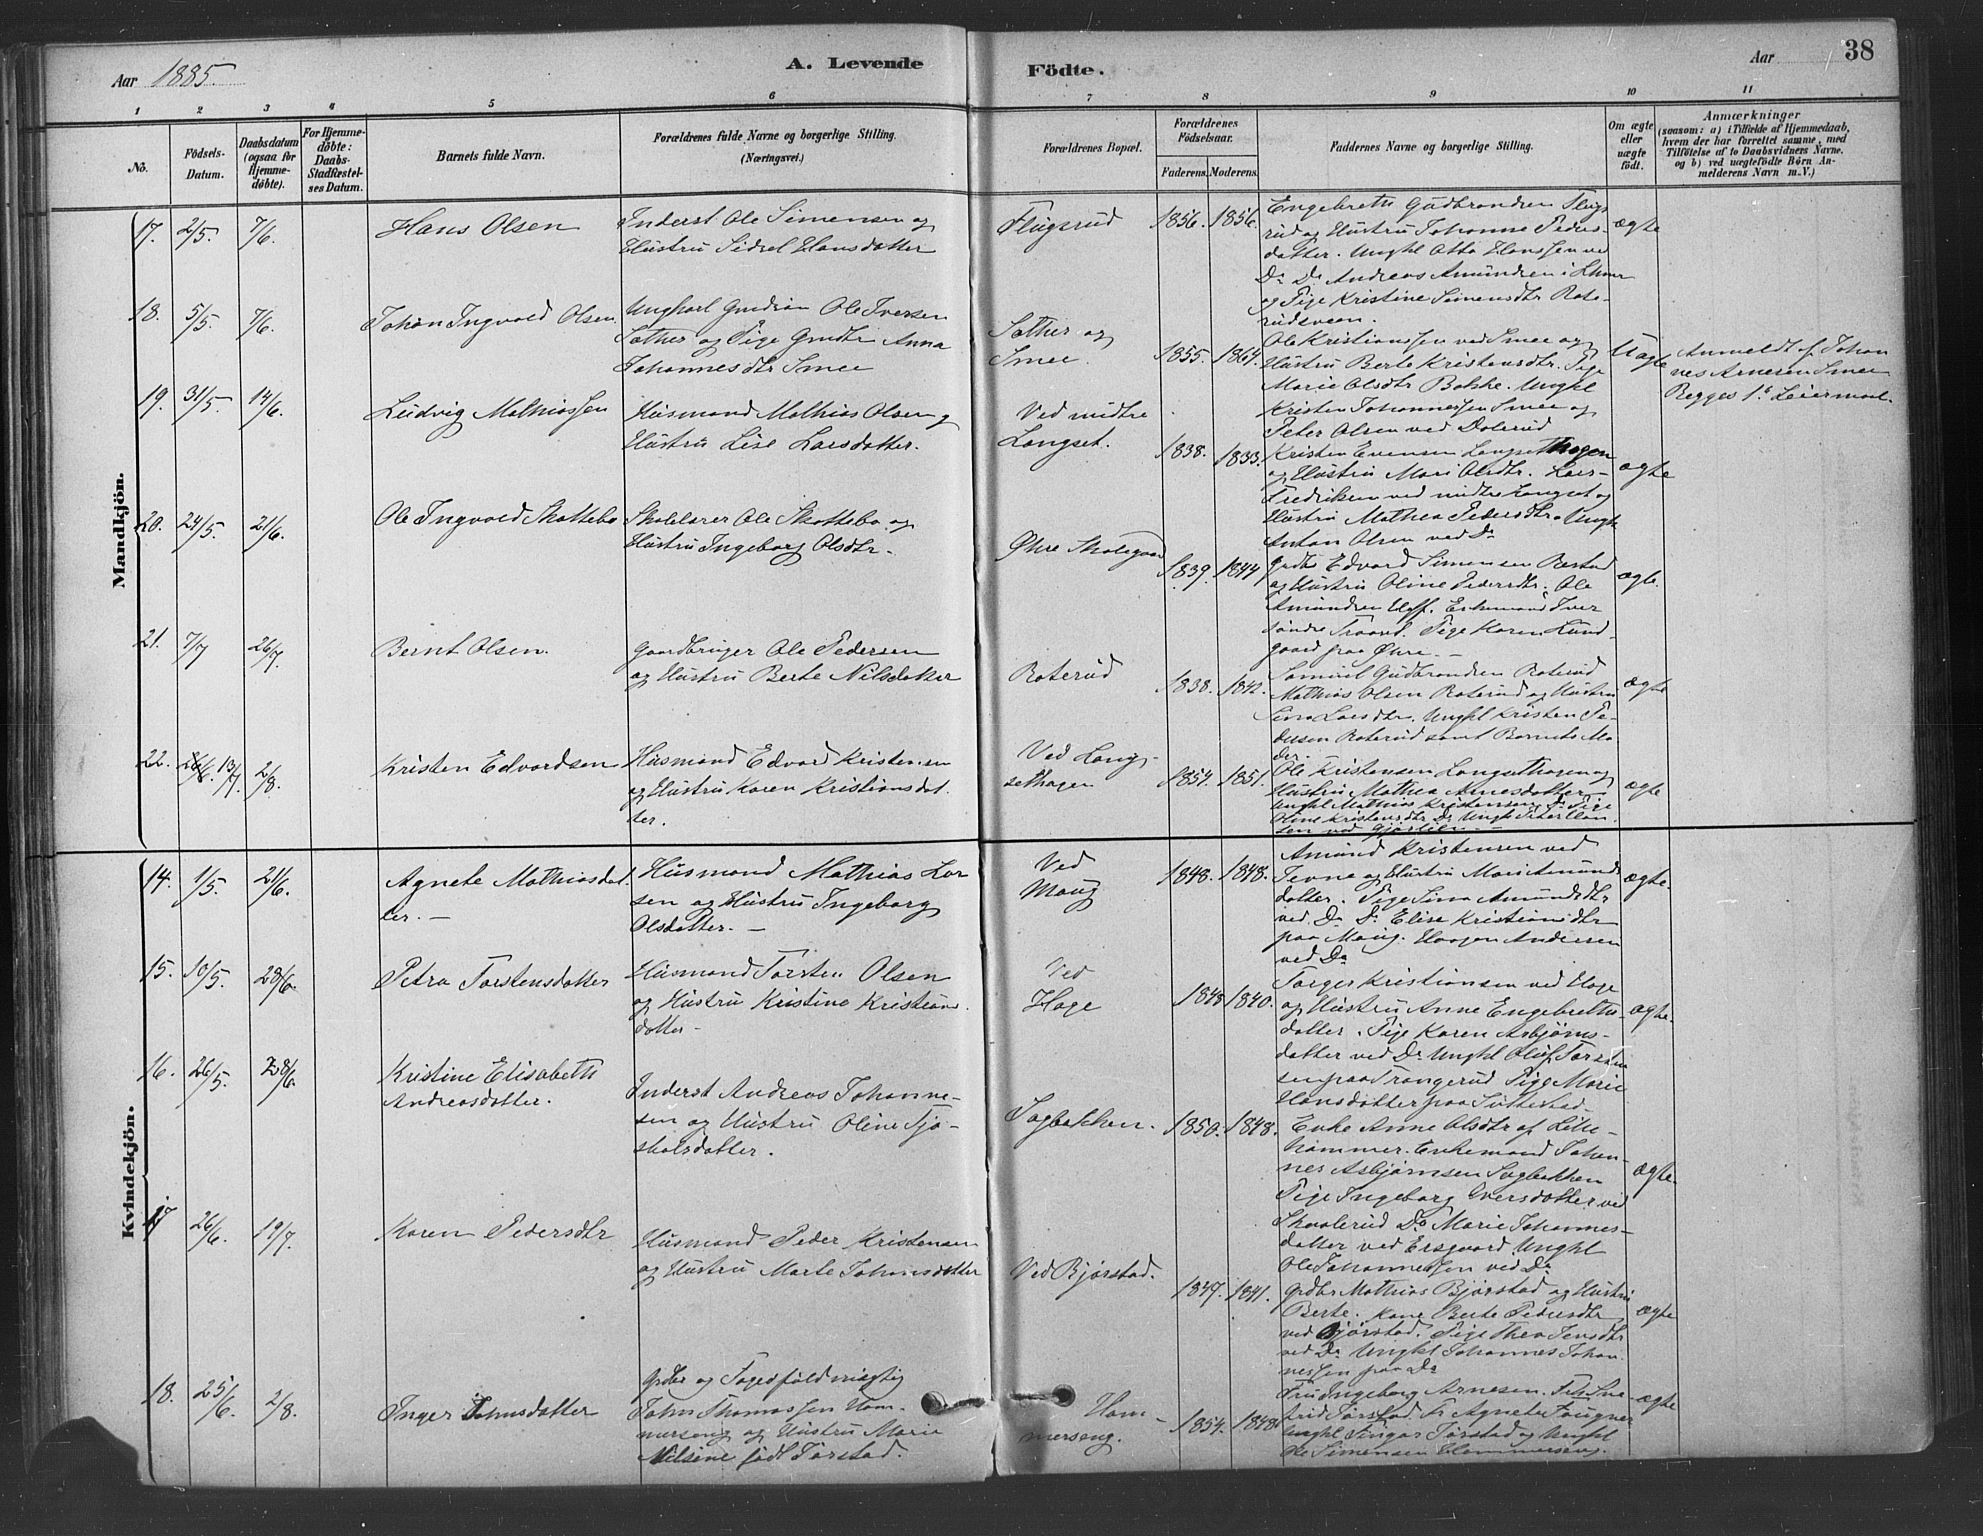 Aar 1885.
A. Levende
Födte.
Aar
38
1 2 3 4 5 6 7 8 9 10 11
No.
Födsels-
Datum.
Daabsdatum
(ogsaa for
Hjemme-
döbte).
For Hjemme-
döbte:
Daabs-
Stadfæstel-
ses Datum.
Barnets fulde Navn.
Forældrenes fulde Navne og borgerlige Stilling.
(Næringsvei.)
Forældrenes Bopæl.
Forældrenes
Födselsaar.
Faderens. Moderens.
Faddernes Navne og borgerlige Stilling.
Om ægte
eller
uægte
födt.
Anmærkninger
(saasom: a) i Tilfælde af Hjemmedaab,
hvem der har forrettet samme, med
Tilföielse af to Daabsvidners Navne.
og b) ved uægtefödte Börn An-
melderens Navn m.V.)
Mandkjön.
17. 2/5. 7/6.
Hans Olsen
Inderst Ole Simensen og
Hustru Sidsel Hansdatter
Flugsrud
1856. 1856.
Engebreth Gudbrandsen Flugs
rud og Hustru Johanne Peders-
datter. Ungkl Otto Hanssen ved
Do Do Andreas Amundsen i
og Pige Kristine Simensdtr Rote-
rudsveen.
ægte
18. 5/5. 7/6.
Johan Ingvald Olsen
Ungkarl Grdsøn Ole Iversen
Sæther og Pige Grddtr Anna
Johannesdtr Smee
Sæther og
Smee.
1855. 1864.
Ole Kristianssen ved Smee og
Hustru Berte Kristensdtr. Pige
Marie Olsdtr Bakke. Ungkl
Kristen Johannessen Smee og
Peter Olsen ved Dalerud
Uægte
Anmeldt af Johan
nes Arnesen Smee
Begges 1ste Leiermaal.
19. 31/5. 14/6.
Ludvig Mathiassen
Husmand Mathias Olsen og
Hustru Lise Larsdatter.
Ved midtre
Langset.
1838. 1833.
Kristen Evensen Langsethagen
og Hustru Mari Olsdtr. Lars
Fredriksen ved midtre Langset og
Hustru Mathea Pedersdtr. Ungk
Anton Olsen ved Do
ægte
20. 24/5. 21/6.
Ole Ingvald Skattebo
Skolelærer Ole Skattebo og
Hustru Ingeborg Olsdtr.
Øhre Skolegaard
1839. 1844
Grdbr Edvard Simensen Røstad
og Hustru Oline Pedersdtr. Ole
Amundsen Hoff. Enkemand Iver
søndre Traaset. Pige Karen Lund-
gaard paa Øhre.
ægte.
21. 7/7 26/7.
Bernt Olsen.
Gaardbruger Ole Pedersen
og Hustru Berte Nilsdatter
Roterud
1838. 1842.
Samuel Gudbrandsen Roterud
Mathias Olsen Roterud og Hustru
Sina Larsdtr. Ungkl Kristen Pe-
dersen Roterud samt Barnets Mo-
der.
ægte
22. 13/7. 2/8.
Kristen Edvardsen
Husmand Edvard Kristensen
og Hustru Karen Kristiansdat
ter.
Ved Lang-
sethagen
1854. 1851.
Ole Kristensen Langsethagen og
Hustru Mathea Arnesdatter
Ungkl Mathias Kristensen Do Pige
Oline Kristensdtr Do Ungk
sen ved
ægte
Kvindekjön.
14. 1/5. 21/6.
Agnete Mathiasdat
ter.
Husmand Mathias Lar
sen og Hustru Ingeborg
Olsdatter.
Ved
Maug
1848. 1848.
Amund Kristensen ved
og Hustru Mari Amunds
datter. Pige Sina Amundsdtr
ved Do Do Elise Kristiansdtr
paa Maug. Haagen Andersen
ved Do
ægte.
15. 10/5. 28/6.
Petra Torstensdatter
Husmand Torsten Olsen
og Hustru Kristine Kristians
datter
Ved
Hage
1848 1840.
Torger Kristiansen ved Hage
og Hustru Anne Engebreths-
datter. Pige Karen Asbjørns-
datter ved Do Ungkl Oluf Torsten
sen paa Trangerud Pige Marie
Hansdatter paa Suttestad
ægte.
16. 26/5. 28/6.
Kristine Elisabeth
Andreasdatter.
Inderst Andreas Johanne-
sen og Hustru Oline Sjø-
skalsdatter.
Sagbakken.
1850. 1848.
Enke Anne Olsdtr af Lille-
hammer. Enkemand Johan-
nes Asbjørnsen Sagbakken
Pige Ingeborg Iversdatter ved
Skvalerud Do Marie Johannes-
datter ved Ersgaard Ungkl
Ole Johannessen ved Do
ægte.
17 26/6. 19/7.
Karen Pedersdtr
Husmand Peder Kristensen
og Hustru Marte Johansdatter
Ved Bjørstad.
1847. 1841.
Grdbr Mathias Bjørstad og Hustru
Berte. Kone Berte Pedersdtr
ved Bjørstad. Pige Thea Jensdtr
ved Do Ungkl Johannes Johan
nessen paa Do
ægte
18. 25/6. 2/8.
Inger Johnsdatter
Grdbr og Sagesføldmægtig
John Thomassen Ham-
merseng og Hustru Marie
Nilsine født Førstad.
Ham-
merseng.
1854. 1848
Fru Ingeborg Arnesen.
Førstad. Agnete Fougner
Ungkl Førstad og Ungkl
Ole Simensen Hammerseng.
ægte